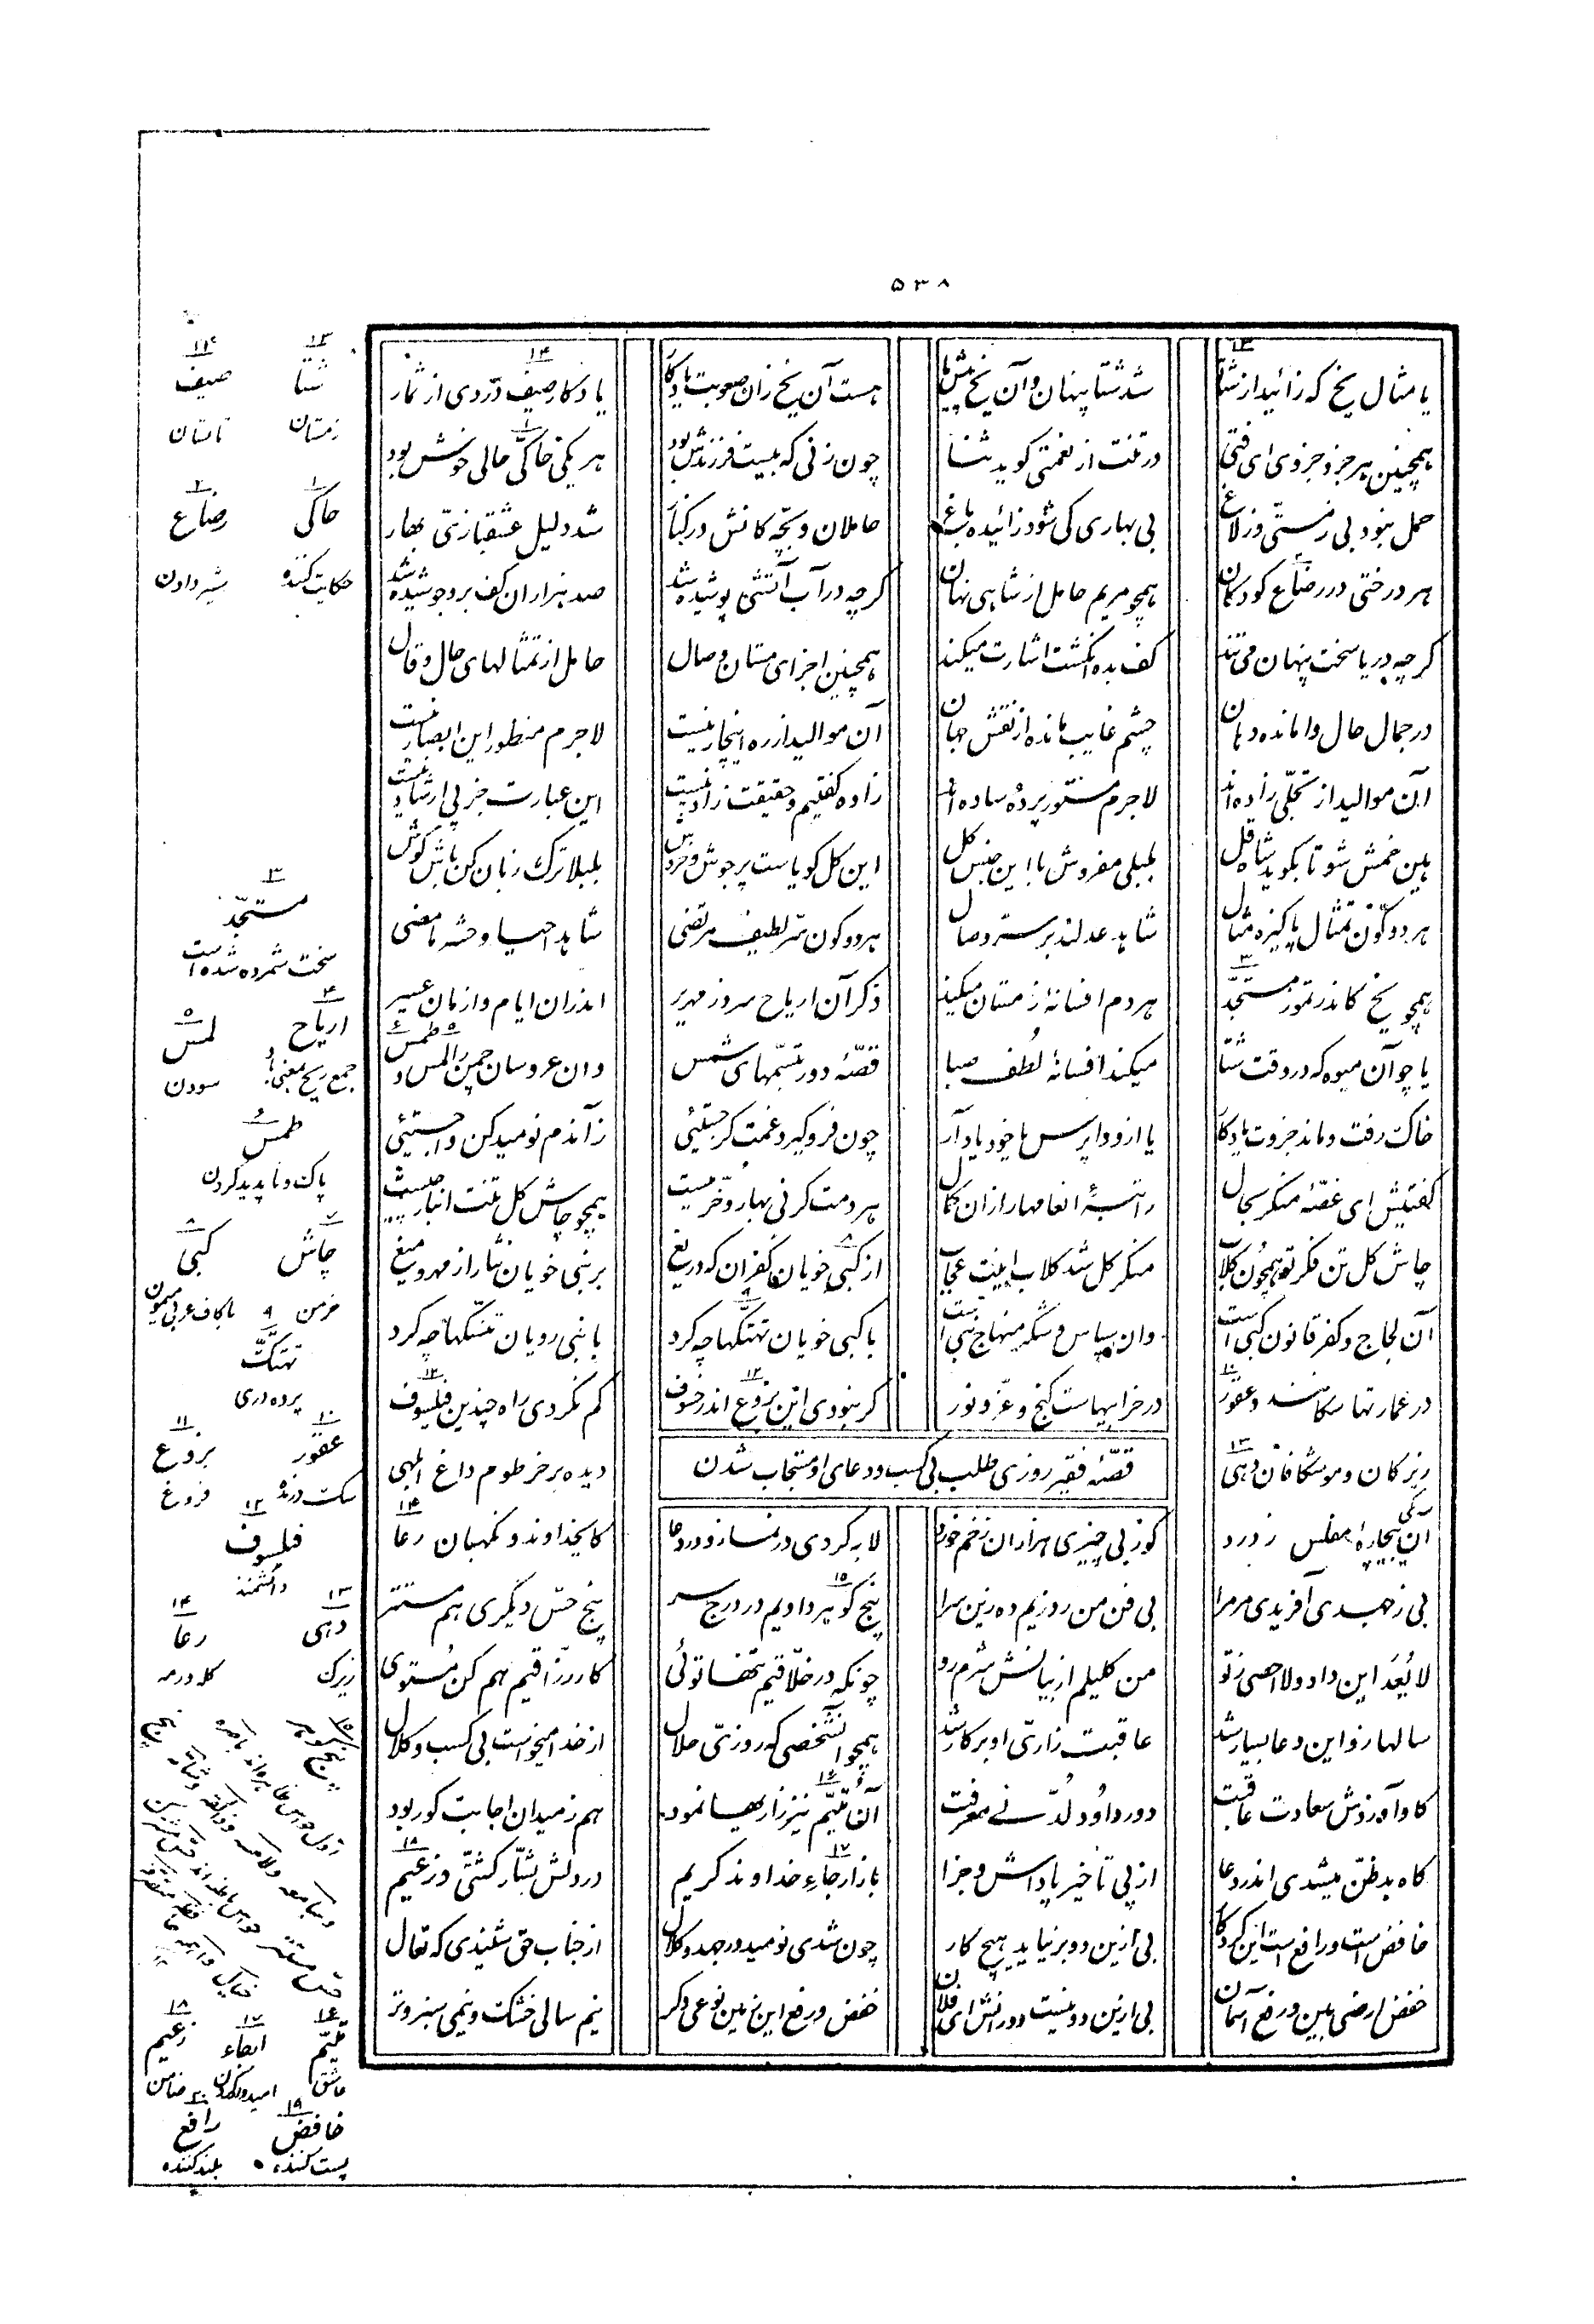 ۵۳۸
یا مثال یخ که زائید از شتا شد شتا پنهان و آن یخ پیش ما هست آن یخ زان صعوبت یادگار یادگار صیف دردی از ثمار
همچنین هر جزو جزوی ای فتی در تنت از نعمتی گوید ثنا چون زنی که بیست فرزندش بود هر یکی حاکی حالی خوش بود
حمل نبود بی ز مستی وز لاغ بی بهاری کی شود زائیده باغ حاملان و بچه کانش در کنار شد دلیل عشقبازی بهار
هر درختی در رضاع کودکان همچو مریم حامل از شاهی نهان گرچه در آب آتشی پوشیده شد صد هزاران کف بر او جوشیده شد
گرچه دریا سخت پنهان می تند کف بده انگشت اشارت میکند همچنین اجزای مستان وصال حامل از تمثالهای حال و قال
در جمال حال وامانده دهان چشم غایب مانده از نقش جهان آن موالید از ره این چار نیست لاجرم منظور این ابصار نیست
آن موالید از تجلی زاده اند لاجرم مستور پرده ساده اند زاده گفتیم و حقیقت زاد نیست این عبارت جز پی ارشاد نیست
هین خمش شو تا بگوید شاه قل بلبلی مفروش با این جنس گل این گل گویاست پر جوش و خروش بلبلا ترک زبان کن باش گوش
هر دو گون تمثال پاکیزه مثال شاهد عدلند بر سر وصال هر دو گون سر لطیف مرتضی شاهد احیا و حشر مامضی
همچو یخ کاندر تموز مستجد هر دم افسانه زمستان میکند ذکر آن اریاح سرد زمهریر اندر آن ایام و ازمان عسیر
یا چو آن میوه که در وقت شتا میکند افسانه لطف صبا قصه دور تبسمهای شمس وان عروسان چمن را لمس و طمس
حال رفت و ماند جزوت یادگار یا ازو واپرس یا خود یاد آر چون فرو گیرد غمت گر چستئی زآندم نومید کن وا جستئی
گفتیش ای غصه منکر بحال راتبه انعامها را زان کمال هر دمت گر نی بهار و خرمیست همچو چاش گل تنت انبار چیست
چاش گل تن فکر تو همچون گلاب منکر گل شد گلاب اینت عجاب از کپی خویان کفران که دریغ بر نبی خویان نثار از مهر و میغ
آن لجاج و کفر قانون کپی است وان سپاس و شکر منهاج نبی است با کپی خویان تهتکها چه کرد با نبی رویان تنسکها چه کرد
در عمارتها سگانند و عقور در خرابیهاست گنج و عز و نور گر نبودی این بزوغ اندر خسوف گم نکردی راه چندین فیلسوف
زیرکان و موشکافان دهی دیده بر خرطوم داغ ابلهی
قصهٔ فقیر روزی طلب بی کسب و دعای او و مستجاب شدن
آن یکی بیچاره مفلس ز درد کو ز بی چیزی هزاران زخم خورد لابه کردی در نماز و در دعا کای خداوند و نگهبان رعا
بی ز جهدی آفریدی مر مرا بی فن من روزیم ده زین سرا پنج گوهر دادیم در درج سر پنج حس دیگری هم مستتر
لا یعد این داد و لا احصی ز تو من کلیلم از بیانش شرم رو چونکه در خلاقیم تنها توئی کار رزاقیم هم کن مستوی
سالها زو این دعا بسیار شد عاقبت زاری او بر کار شد همچو آنشخصی که روزی حلال از خدا میخواست بی کسب و کلال
گاو آوردش سعادت عاقبت دور داود لدنی معرفت آن متیم نیز زاریها نمود هم ز میدان اجابت گو ربود
گاه بد ظن میشدی اندر دعا از پی تاخیر پاداش و جزا باز ارجاء خداوند کریم در دلش بشار گشتی و زعیم
چون شدی نومید در جهد و کلال از جناب حق شنیدی که تعال خافض است و رافع است این کردگار بی ازین دو بر نیاید هیچ کار
خفض ارضی بین و رفع آسمان بی ازین دو نیست دورانش ای فلان خفض و رفع این زمین نوعی دگر نیم سالی خشک و نیمی سبز و تر
۱۳ شتا زمستان
۱۴ صیف تابستان
۱ حاکی حکایت کننده
۲ رضاع شیر دادن
۳ مستجد
سخت شمرده شده است
۴ اریاح جمع ریح بمعنی باد
۵ لمس سودن
۶ طمس
پاک و ناپدید کردن
۷ چاش خرمن
۸ کپی با کاف عربی میمون
۹ تهتک
پرده دری
۱۰ عقور سگ درنده
۱۱ بزوغ فروغ
۱۲ فیلسوف
دانشمند
۱۳ دهی زیرک
۱۴ رعا گله و رمه
۱۵ پنج گوهر
۱۶ متیم عاشق
۱۷ ارجاء امیدوار کردن
۱۸ زعیم ضامن
۱۹ خافض پست کننده
۲۰ رافع بلند کننده